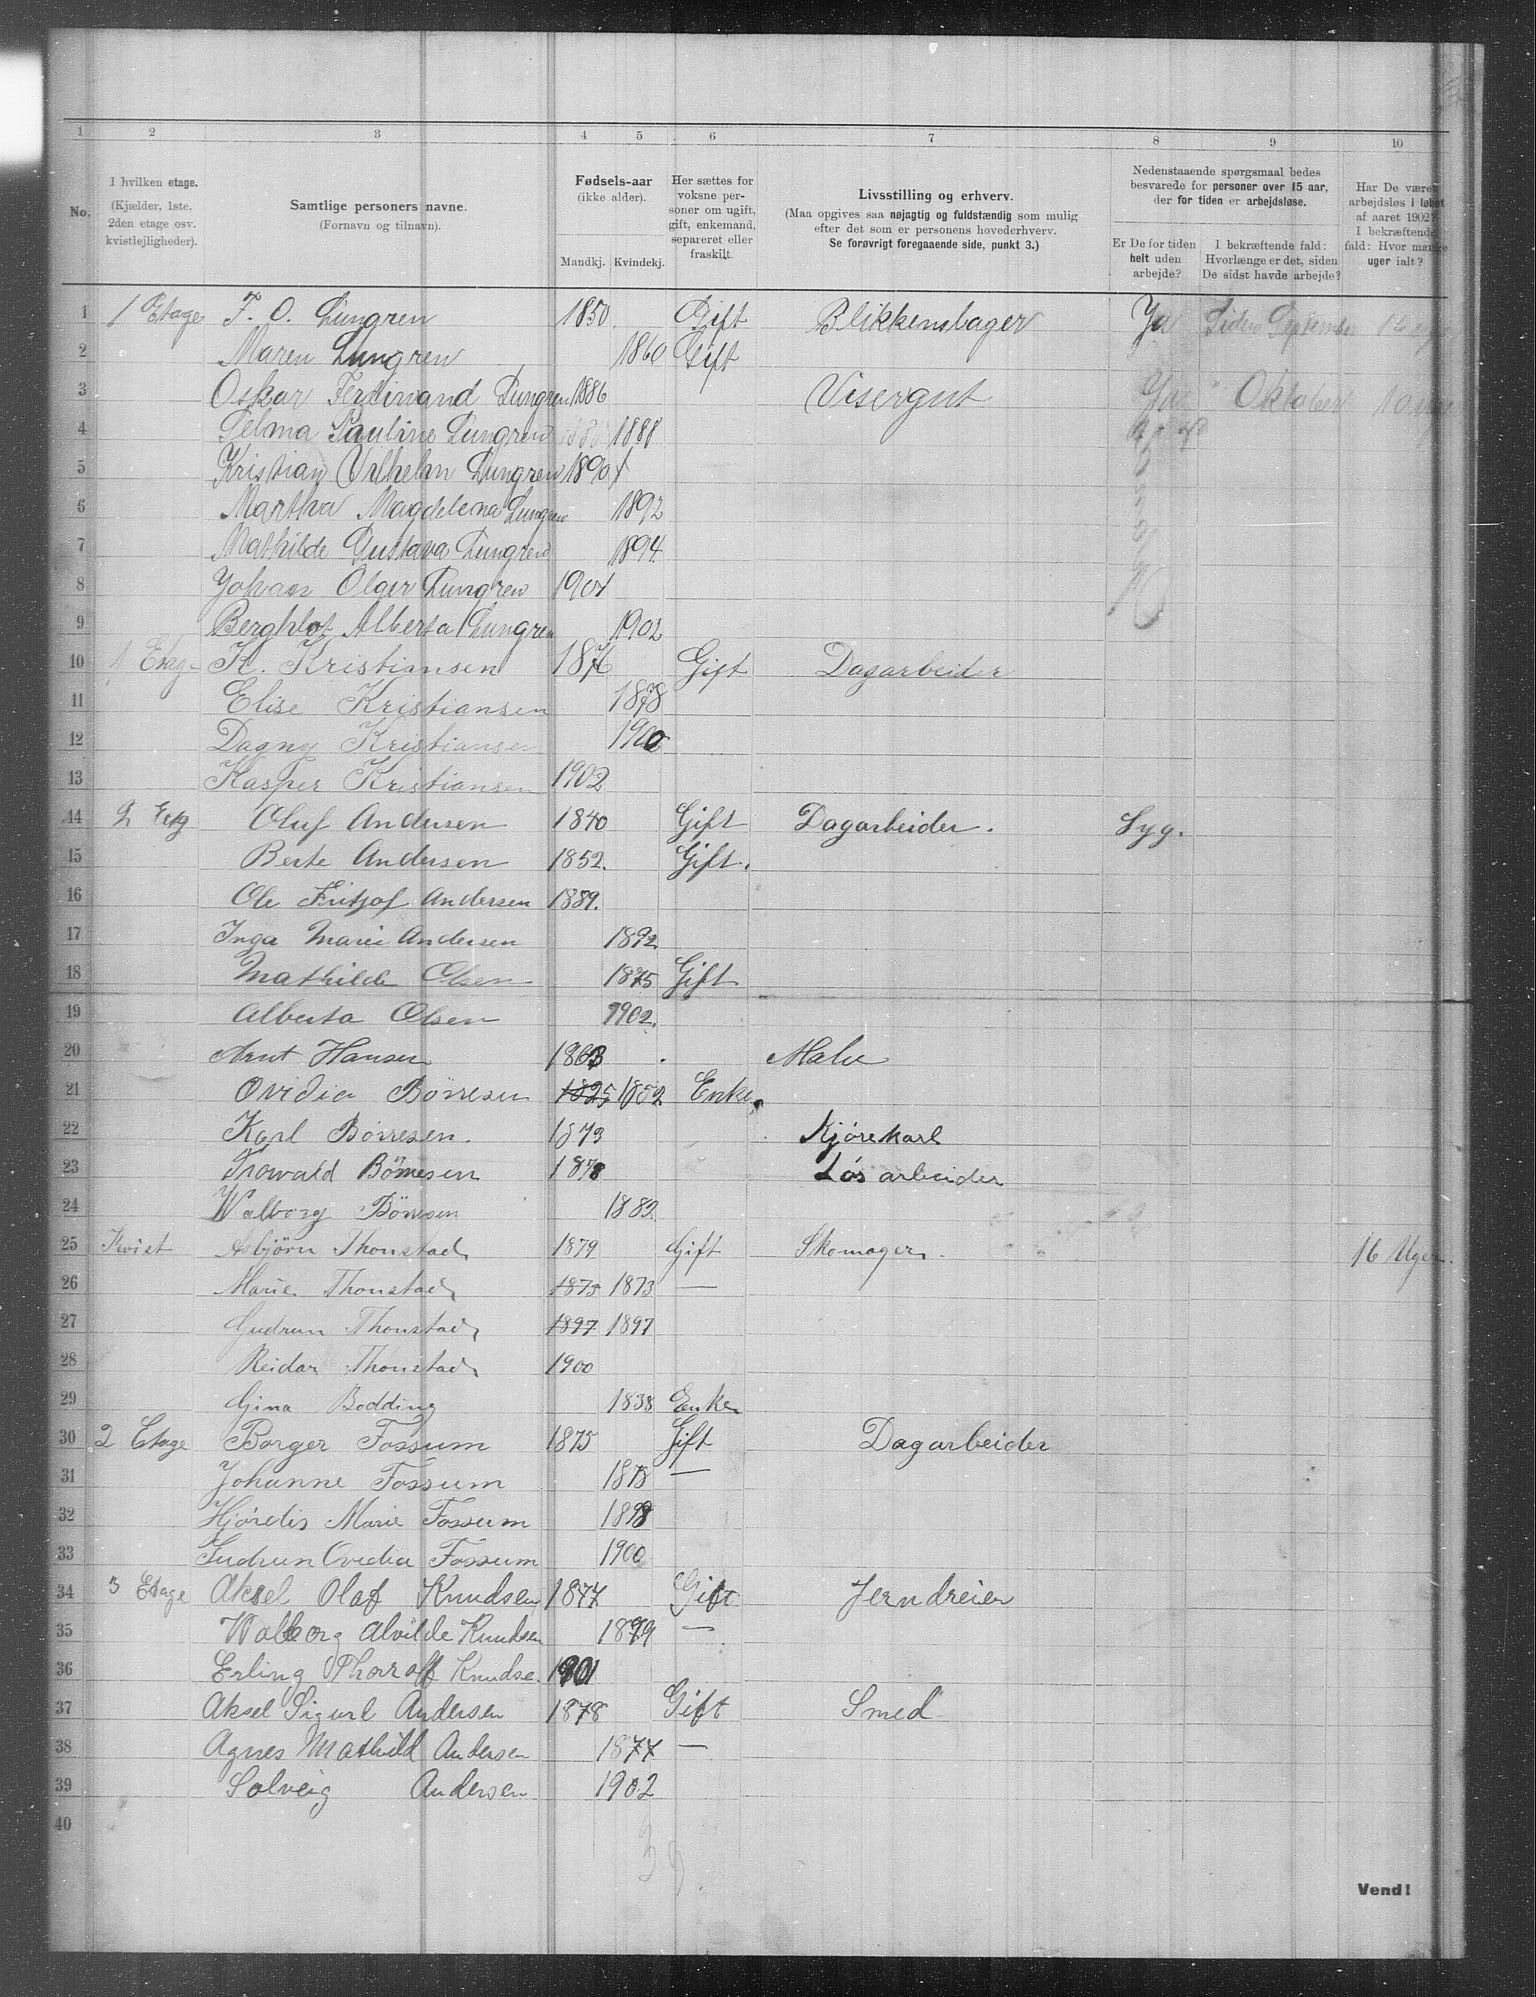 1 2 3 4 5 6 7 8 9 10
No.
I hvilken etage. (Kjælder, 1ste. 2den etage osv. kvistlejligheder).
Samtlige personers navne. (Fornavn og tilnavn).
Fødsels-aar (ikke alder). Mandkj. Kvindekj.
Her sættes for voksne personer om ugift, gift, enkemand, separeret eller fraskilt.
Livsstilling og erhverv. (Maa opgives saa nøjagtig og fuldstændig som mulig efter det som er personens hovederhverv. Se forøvrigt foregaaende side, punkt 3.)
Nedenstaaende spørgsmaal bedes besvarede for personer over 15 aar, der for tiden er arbejdsløse.
Er De for tiden helt uden arbejde?
I bekræftende fald: Hvorlænge er det, siden De sidst havde arbejde?
Har De været arbejdsløs i løbet af aaret 1902? I bekræftende fald: Hvor mange uger ialt?
1 1 Etage F. O. Lungren 1850 Gift Blikkenslager Ja Siden September
2 Maren Lungren 1860 Gift
3 Oskar Ferdinand Lungren 1886 Visergut Ja Oktober 10
4 Selma Pauline Lungren 1888
5 Kristian Vilhelm Lungren 1890
6 Martha Magdelena Lungren 1892
7 Mathilde Gustava Lungren 1894
8 Johan Olger Lungren 1901
9 Berghlot Alberta Lungren 1902
10 1 Etag K. Kristiansen 1876 Gift Dagarbeider
11 Elise Kristiansen 1878
12 Dagny Kristiansen 1900
13 Kasper Kristiansen 1902
14 2 Etag Oluf Andersen 1840 Gift Dagarbeider. Syg.
15 Berte Andersen 1852. Gift.
16 Ole Fritjof Andersen 1889.
17 Inga Marie Andersen 1892
18 Mathilde Olsen 1875 Gift
19 Alberta Olsen 1902.
20 Arnt Hansen 1863 Maler
21 Ovidia Börresen 1825 1852 Enke.
22 Karl Börresen. 1873 Kjörekarl
23 Trowald Börresen 1878 Lösarbeider
24 Walborg Börresen 1882
25 Kvist Asbjörn Thonstad 1879 Gift Skomager. 16 Uger.
26 Marie Thonstad 1873 1873 —
27 Gudrun Thonstad 1897 1897
28 Reidar Thonstad 1900
29 Gina Bodding 1838 Enke
30 2 Etage Borger Fossum 1875 Gift Dagarbeider
31 Johanne Fossum 1878 —
32 Hjördis Marie Fossum 1898
33 Gudrun Ovidia Fossum 1900
34 3 Etage Aksel Olaf Knudsen 1877 Gift Jerndreier
35 Walborg Alvilde Knudsen 1879 —
36 Erling Thoralf Knudse. 1901
37 Aksel Sigurd Andersen 1878 Gift Smed
38 Agnes Mathild Andersen 1877 —
39 Solveig Andersen 1902
40
39.
Vend!